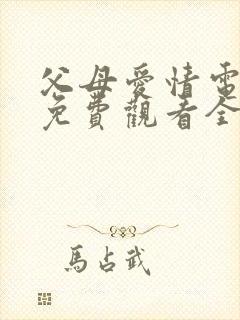 父母愛情電
免費觀看全
馬占武